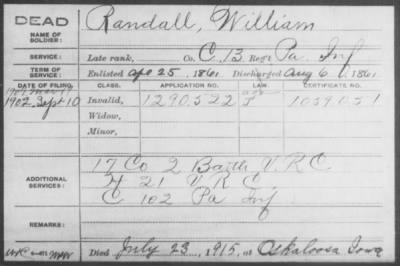 DEAD
NAME OF SOLDIER:
Randall, William
SERVICE:
Late rank, Co. C. 13 Reg't Pa Inf
TERM OF SERVICE:
Enlisted Apr 25, 1861 Discharged Aug 6, 1861
DATE OF FILING. CLASS. APPLICATION NO. LAW. CERTIFICATE NO.
1902 Sept 10 Invalid, 1290522 1059051
Widow,
Minor,
ADDITIONAL SERVICES:
17 Co 2 Batt V. R. C
21 V R C
C 102 Pa Inf
REMARKS:
Died July 23, 1915, at Oskaloosa Iowa